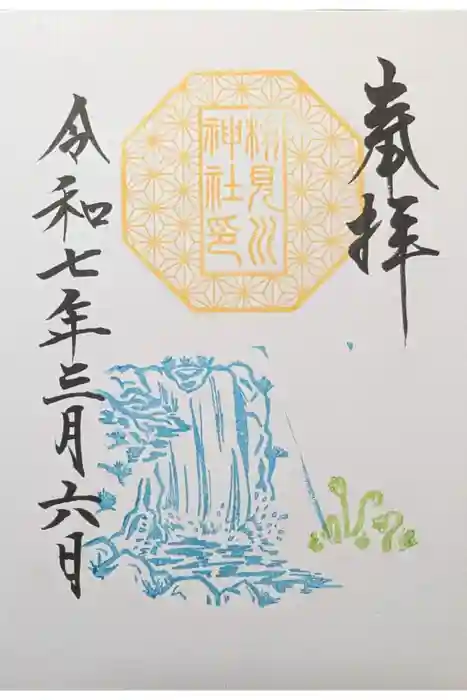 奉拝
杉見川
神社印
令和七年三月六日